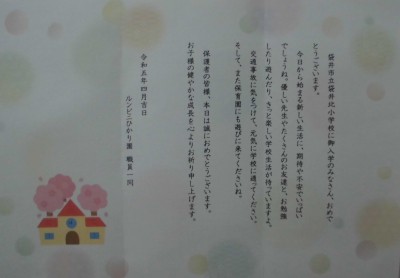 袋井市立袋井北小学校に御入学のみなさん、おめで
とうございます。
今日から始まる新しい生活に、期待や不安でいっぱい
でしょうね。優しい先生やたくさんのお友達と、お勉強
したり遊んだり、きっと楽しい学校生活が待っていますよ。
交通事故に気をつけて、元気に学校に通ってください。
そして、また保育園にも遊びに来てくださいね。
保護者の皆様、本日は誠におめでとうございます。
お子様の健やかな成長を心よりお祈り申し上げます。
令和五年四月吉日
ルンビニひかり園 職員一同